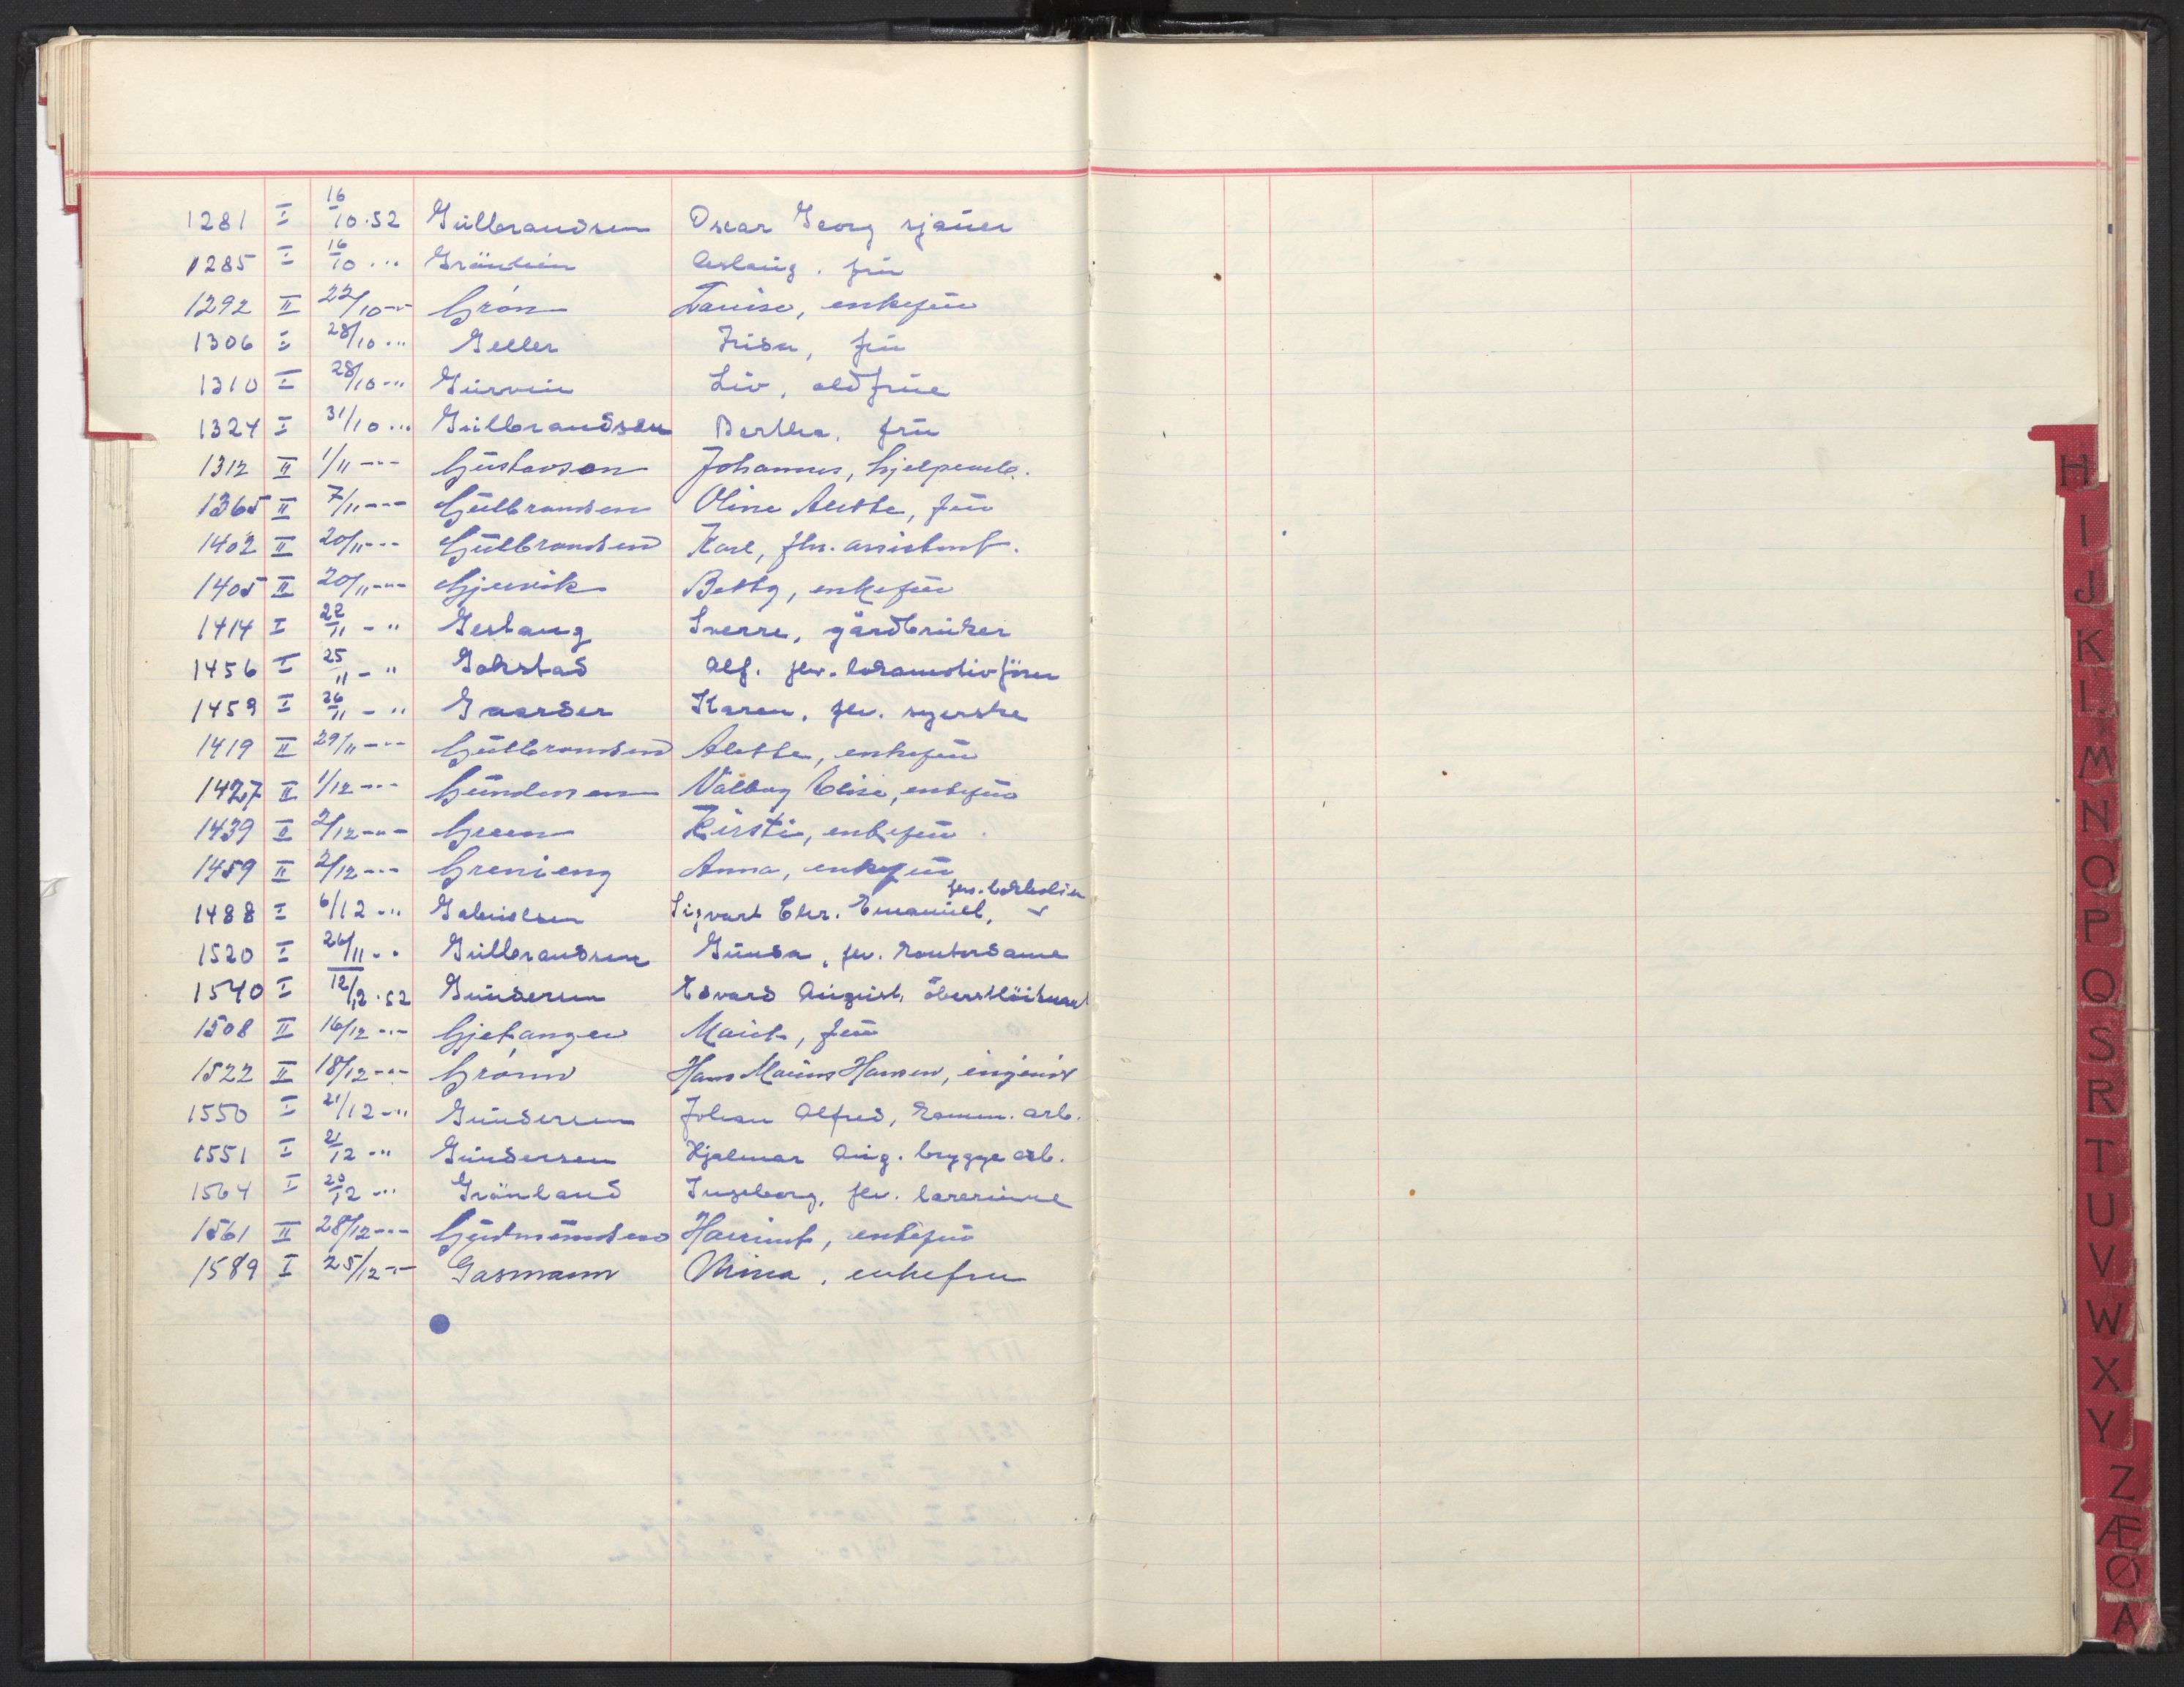 1281 I 16/10.52 Gulbrandsen Oscar Georg sjauer
1285 I 16/10 -"- Aslaug. fru
1292 II 22/10 -"- Grøn Louise, enkefru
1306 I 28/10 -"- Geller Frisa, fru
1310 I 28/10 -"- Liv, oldfrue
1324 I 31/10 -"- Gulbrandsen Bertha. fru
1312 II 1/11 -"- Gustavson Johannes, hjelpearb.
1365 II 7/11 -"- Gulbrandsen Oline Alette, fru
1402 II 20/11 -"- Gulbrandsen Karl, fhv. assistent.
1405 II 20/11 -"- Gjervik Betty, enkefru
1414 I 22/11 - " Gestaug Sverre, gårdbruker
1456 I 25/11 - " Gokstad Alf. fhv. lokomotivfører
1459 I 26/11 - " Gaarder Karen, fhv. syerske
1419 II 29/11 -"- Gulbrandsen Alette, enkefru
1427 II 1/12 -"- Gundersen Valborg Elise, enkefru
1439 II 2/12 -"- Green Kirsti, enkefru.
1459 II 2/12 -"- Grenieng Anna, enkefru
1488 I 6/12 -"- Gabrielsen Sigvart Chr. Emanuel,
1520 I 26/11 -"- Gulbrandsen Gunda, fhv. kontordame
1540 I 12/12.52 Gundersen Edvard August, øberstløitnant
1508 II 16/12 -"- Gjetanger Marit, fru
1522 II 18/12 -"- Grønn Hans Marius Hansen, ingeniør
1550 I 21/12 -"- Gundersen Johan Alfred, komm. arb.
1551 I 21/12 -"- Gundersen Hjalmar Aug. bryggearb.
1564 I 20/12 -"- Grønland Ingeborg, fhv. lærerinne
1561 II 28/12 -"- Gudmundsen Harriet, enkefru
1589 I 25/12 -"- Gasmann Mina, enkefru
H
I
J
K
L
M
N
O
P
Q
S
R
T
U
V
W
X
Y
Z
Æ
Ø
A